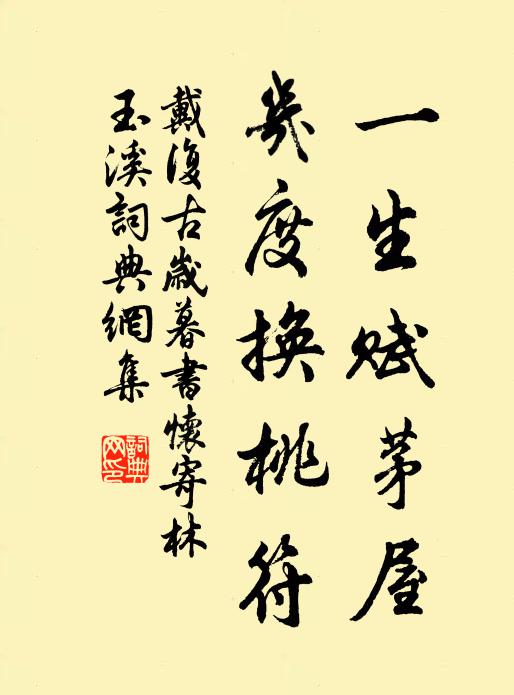 一生賦茅屋
幾度換桃符
戴復古歲暮書懷寄林
玉溪詞典網集
詞典網印